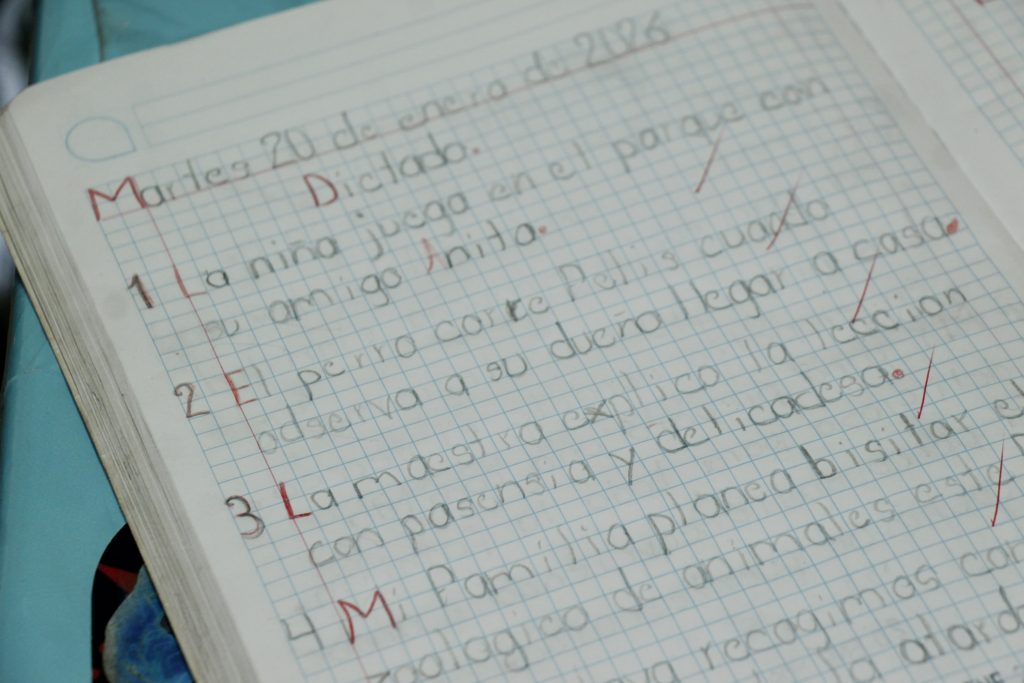 Martes 20 de enero de 2026
Dictado.
1 La niña juega en el parque con
su amigo Anita.
2 El perro corre Pelis cuando
adserva a su dueño llegar a casa.
3 La maestra explico la leccion
con pasensia y delicadesa.
4 Mi Pamilia planea bisitar el
zoologico de animales esta
recogimos con
la atard